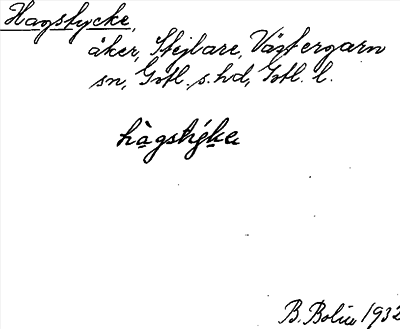 Hagstycke,
åker, Stejlare, Västergarn
sn, Gotl. s. hd, Gotl. l.
hàgstýke
B. Bolin 1932